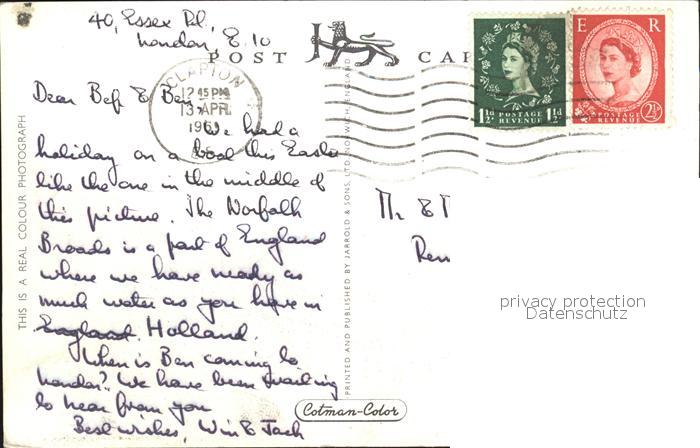 40, Essex Rd.,
London, E.10
POST CAR
CLAPTON
12 45 PM
13 APR
196
E5
E R
1½d POSTAGE REVENUE 1½d
POSTAGE REVENUE 2½d
Dear Bep & Ben,
We had a
holiday on a boat this Easter
like the one in the middle of
this picture. The Norfolk
Broads is a part of England
where we have nearly as
much water as you have in
England. Holland.
When is Ben coming to
London? We have been waiting
to hear from you
Best wishes, Win & Jack
THIS IS A REAL COLOUR PHOTOGRAPH
PRINTED AND PUBLISHED BY JARROLD & SONS, LTD. NORWICH, ENGLAND
Mr &
privacy protection
Datenschutz
Cotman-Color